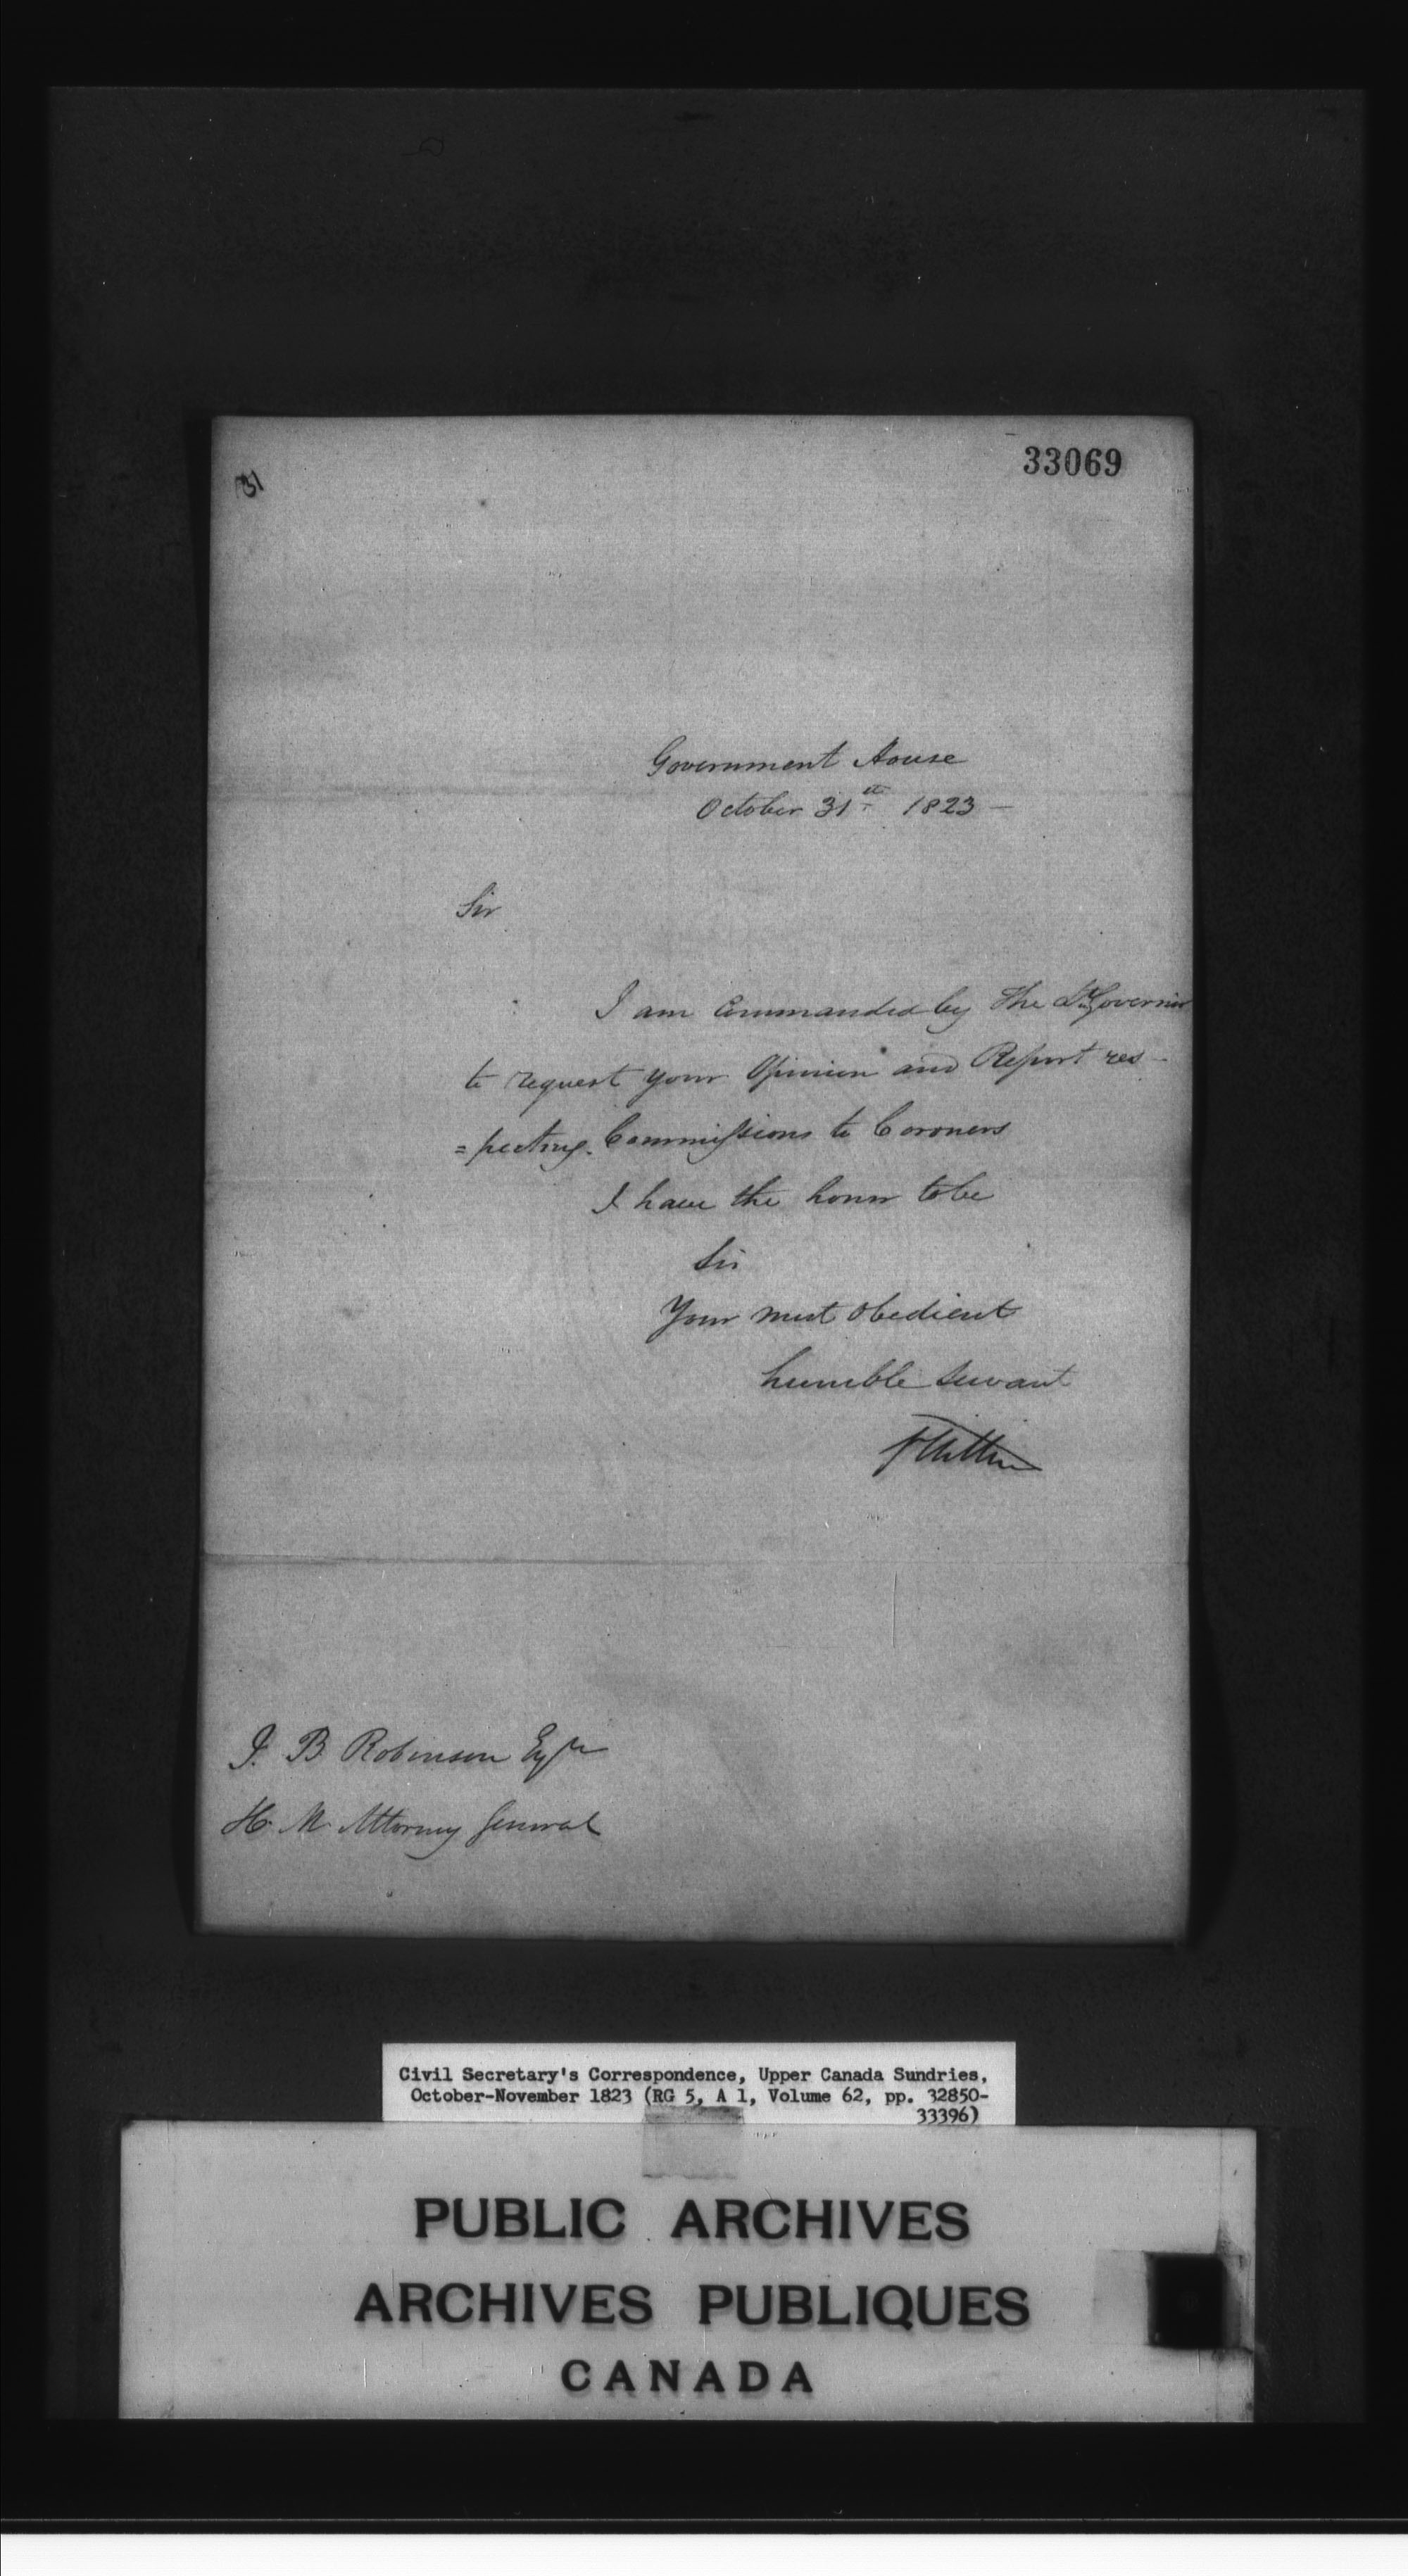 33069
31
Government House
October 31th 1823 —
Sir
I am Commanded by The Lt Governor
to request your Opinion and Report res-
=pecting Commissions to Coroners
I have the honor to be
Sir
Your most obedient
humble servant
J. B. Robinson Esqre
H. M. Attorney General
Civil Secretary's Correspondence, Upper Canada Sundries,
October-November 1823 (RG 5, A 1, Volume 62, pp. 32850-
33396)
PUBLIC ARCHIVES
ARCHIVES PUBLIQUES
CANADA